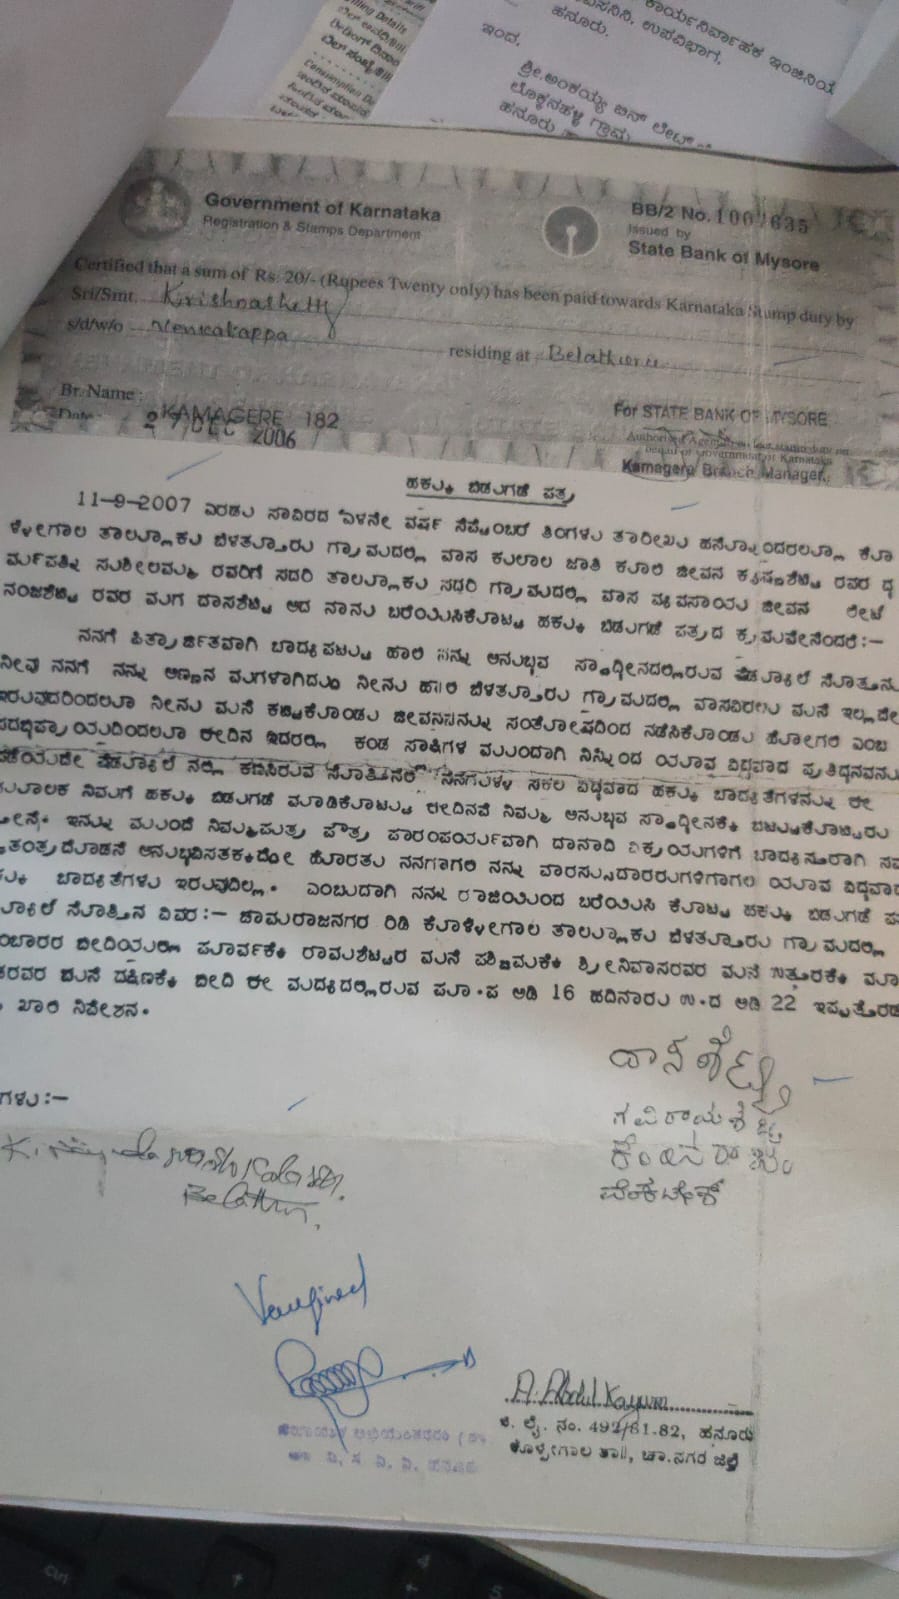 Billing Details
Consumption De
ಕಾರ್ಯನಿರ್ವಾಹಕ ಇಂಜಿನಿಯ
ಉಪವಿಭಾಗ,
ಹನೂರು.
ಇಂದ,
ಶ್ರೀ.ಅಂಕಯ್ಯ ಬಿನ್ ಲೇಟ್
ಲೊಕ್ಕನಹಳ್ಳಿ ಗ್ರಾಮ
ಹನೂರು
Government of Karnataka
Registration & Stamps Department
BB/2 No.
Issued by
State Bank of Mysore
Certified that a sum of Rs. 20/- (Rupees Twenty only) has been paid towards Karnataka Stamp duty by
Sri/Smt. Krishnashetty
s/d/w/o Venkatappa residing at Belathuru
Br. Name : KAMAGERE 182
Date : 27 DEC 2006
For STATE BANK OF MYSORE
Kamagere Branch Manager.
ಹಕ್ಕು ಬಿಡುಗಡೆ ಪತ್ರ
11-9-2007 ಎರಡು ಸಾವಿರದ ಏಳನೇ ವರ್ಷ ಸೆಪ್ಟೆಂಬರ್ ತಿಂಗಳು ತಾರೀಖು ಹನ್ನೊಂದರಲ್ಲೂ ಕೊ
ಳ್ಳೇಗಾಲ ತಾಲ್ಲೂಕು ಬೆಳತ್ತೂರು ಗ್ರಾಮದಲ್ಲಿ ವಾಸ ಕುಲಾಲ ಜಾತಿ ಕೂಲಿ ಜೀವನ ಕೃಷ್ಣಶೆಟ್ಟಿ ರವರ ಧ
ರ್ಮಪತ್ನಿ ಸುಶೀಲಮ್ಮ ರವರಿಗೆ ಸದರಿ ತಾಲ್ಲೂಕು ಸದರಿ ಗ್ರಾಮದಲ್ಲಿ ವಾಸ ವ್ಯವಸಾಯ ಜೀವನ ಲೇಟ್
ನಂಜಶೆಟ್ಟಿ ರವರ ಮಗ ದಾಸಶೆಟ್ಟಿ ಆದ ನಾನು ಬರೆಯಿಸಿಕೊಟ್ಟ ಹಕ್ಕು ಬಿಡುಗಡೆ ಪತ್ರದ ಕ್ರಮವೇನೆಂದರೆ:-
ನನಗೆ ಪಿತ್ರಾರ್ಜಿತವಾಗಿ ಬಾಧ್ಯಪಟ್ಟು ಹಾಲಿ ನನ್ನ ಅನುಭವ ಸ್ವಾಧೀನದಲ್ಲಿರುವ ಷೆಡ್ಯೂಲ್ ಸೊತ್ತನು
ನೀವು ನನಗೆ ನನ್ನ ಅಣ್ಣನ ಮಗಳಾಗಿದ್ದು ನೀನು ಹಾಲಿ ಬೆಳತ್ತೂರು ಗ್ರಾಮದಲ್ಲಿ ವಾಸವಿರಲು ಮನೆ ಇಲ್ಲದೇ
ಇರುವುದರಿಂದಲೂ ನೀನು ಮನೆ ಕಟ್ಟಿಕೊಂಡು ಜೀವನವನ್ನು ಸಂತೋಷದಿಂದ ನಡೆಸಿಕೊಂಡು ಹೋಗಲಿ ಎಂಬ
ಸದಭಿಪ್ರಾಯದಿಂದಲೂ ಈದಿನ ಇದರಲ್ಲಿ ಕಂಡ ಸಾಕ್ಷಿಗಳ ಮುಂದಾಗಿ ನಿನ್ನಿಂದ ಯಾವ ವಿಧವಾದ ಪ್ರತಿಫಲವನು
ಪಡೆಯದೇ ಷೆಡ್ಯೂಲ್ ನಲ್ಲಿ ಕಾಣಿಸಿರುವ ಸೊತ್ತಿನಲ್ಲಿ ನನಗಿರುವ ಸಕಲ ವಿಧವಾದ ಹಕ್ಕು ಬಾಧ್ಯತೆಗಳನ್ನು ಈ
ಮೂಲಕ ನಿಮಗೆ ಹಕ್ಕು ಬಿಡುಗಡೆ ಮಾಡಿಕೊಟ್ಟು ಈದಿನವೆ ನಿಮ್ಮ ಅನುಭವ ಸ್ವಾಧೀನಕ್ಕೆ ಬಿಟ್ಟುಕೊಟ್ಟಿರು
ತ್ತೇನೆ. ಇನ್ನು ಮುಂದೆ ನಿಮ್ಮ ಪುತ್ರ ಪೌತ್ರ ಪಾರಂಪರ್ಯವಾಗಿ ದಾನಾದಿ ವಿಕ್ರಯಗಳಿಗೆ ಬಾಧ್ಯಸ್ತರಾಗಿ ಸರ್ವ
ತಂತ್ರದೊಡನೆ ಅನುಭವಿಸತಕ್ಕದ್ದೇ ಹೊರತು ನನಗಾಗಲಿ ನನ್ನ ವಾರಸ್ಸುದಾರರುಗಳಿಗಾಗಲಿ ಯಾವ ವಿಧವಾದ
ಬಾಧ್ಯತೆಗಳು ಇರುವುದಿಲ್ಲ. ಎಂಬುದಾಗಿ ನನ್ನ ರಾಜಿಯಿಂದ ಬರೆಯಿಸಿ ಕೊಟ್ಟ ಹಕ್ಕು ಬಿಡುಗಡೆ ಪ
ಷೆಡ್ಯೂಲ್ ಸೊತ್ತಿನ ವಿವರ:- ಚಾಮರಾಜನಗರ ರಿಡಿ ಕೊಳ್ಳೇಗಾಲ ತಾಲ್ಲೂಕು ಬೆಳತ್ತೂರು ಗ್ರಾಮದಲ್ಲಿ
ಕುಂಬಾರರ ಬೀದಿಯಲ್ಲಿ ಪೂರ್ವಕ್ಕೆ ರಾಮಶೆಟ್ಟರ ಮನೆ ಪಶ್ಚಿಮಕ್ಕೆ ಶ್ರೀನಿವಾಸರವರ ಮನೆ ಉತ್ತರಕ್ಕೆ ಮಾ
ರವರ ಮನೆ ದಕ್ಷಿಣಕ್ಕೆ ಬೀದಿ ಈ ಮದ್ಯದಲ್ಲಿರುವ ಪೂ.ಪ ಅಡಿ 16 ಹದಿನಾರು ಉ.ದ ಅಡಿ 22 ಇಪ್ಪತ್ತೆರಡ
ಖಾಲಿ ನಿವೇಶನ.
ಗಳು:-
ದಾಸಶೆಟ್ಟಿ
ಗವಿರಾಮಶೆಟ್ಟಿ
ವೆಂಕಟೇಶ್
Belathur,
Verified
A. Abdul Kayum
ಪ. ಲೈ. ನಂ. 492/81-82, ಹನೂರು
ಕೊಳ್ಳೇಗಾಲ ತಾ||, ಚಾ.ನಗರ ಜಿಲ್ಲೆ
Ctrl
4
5